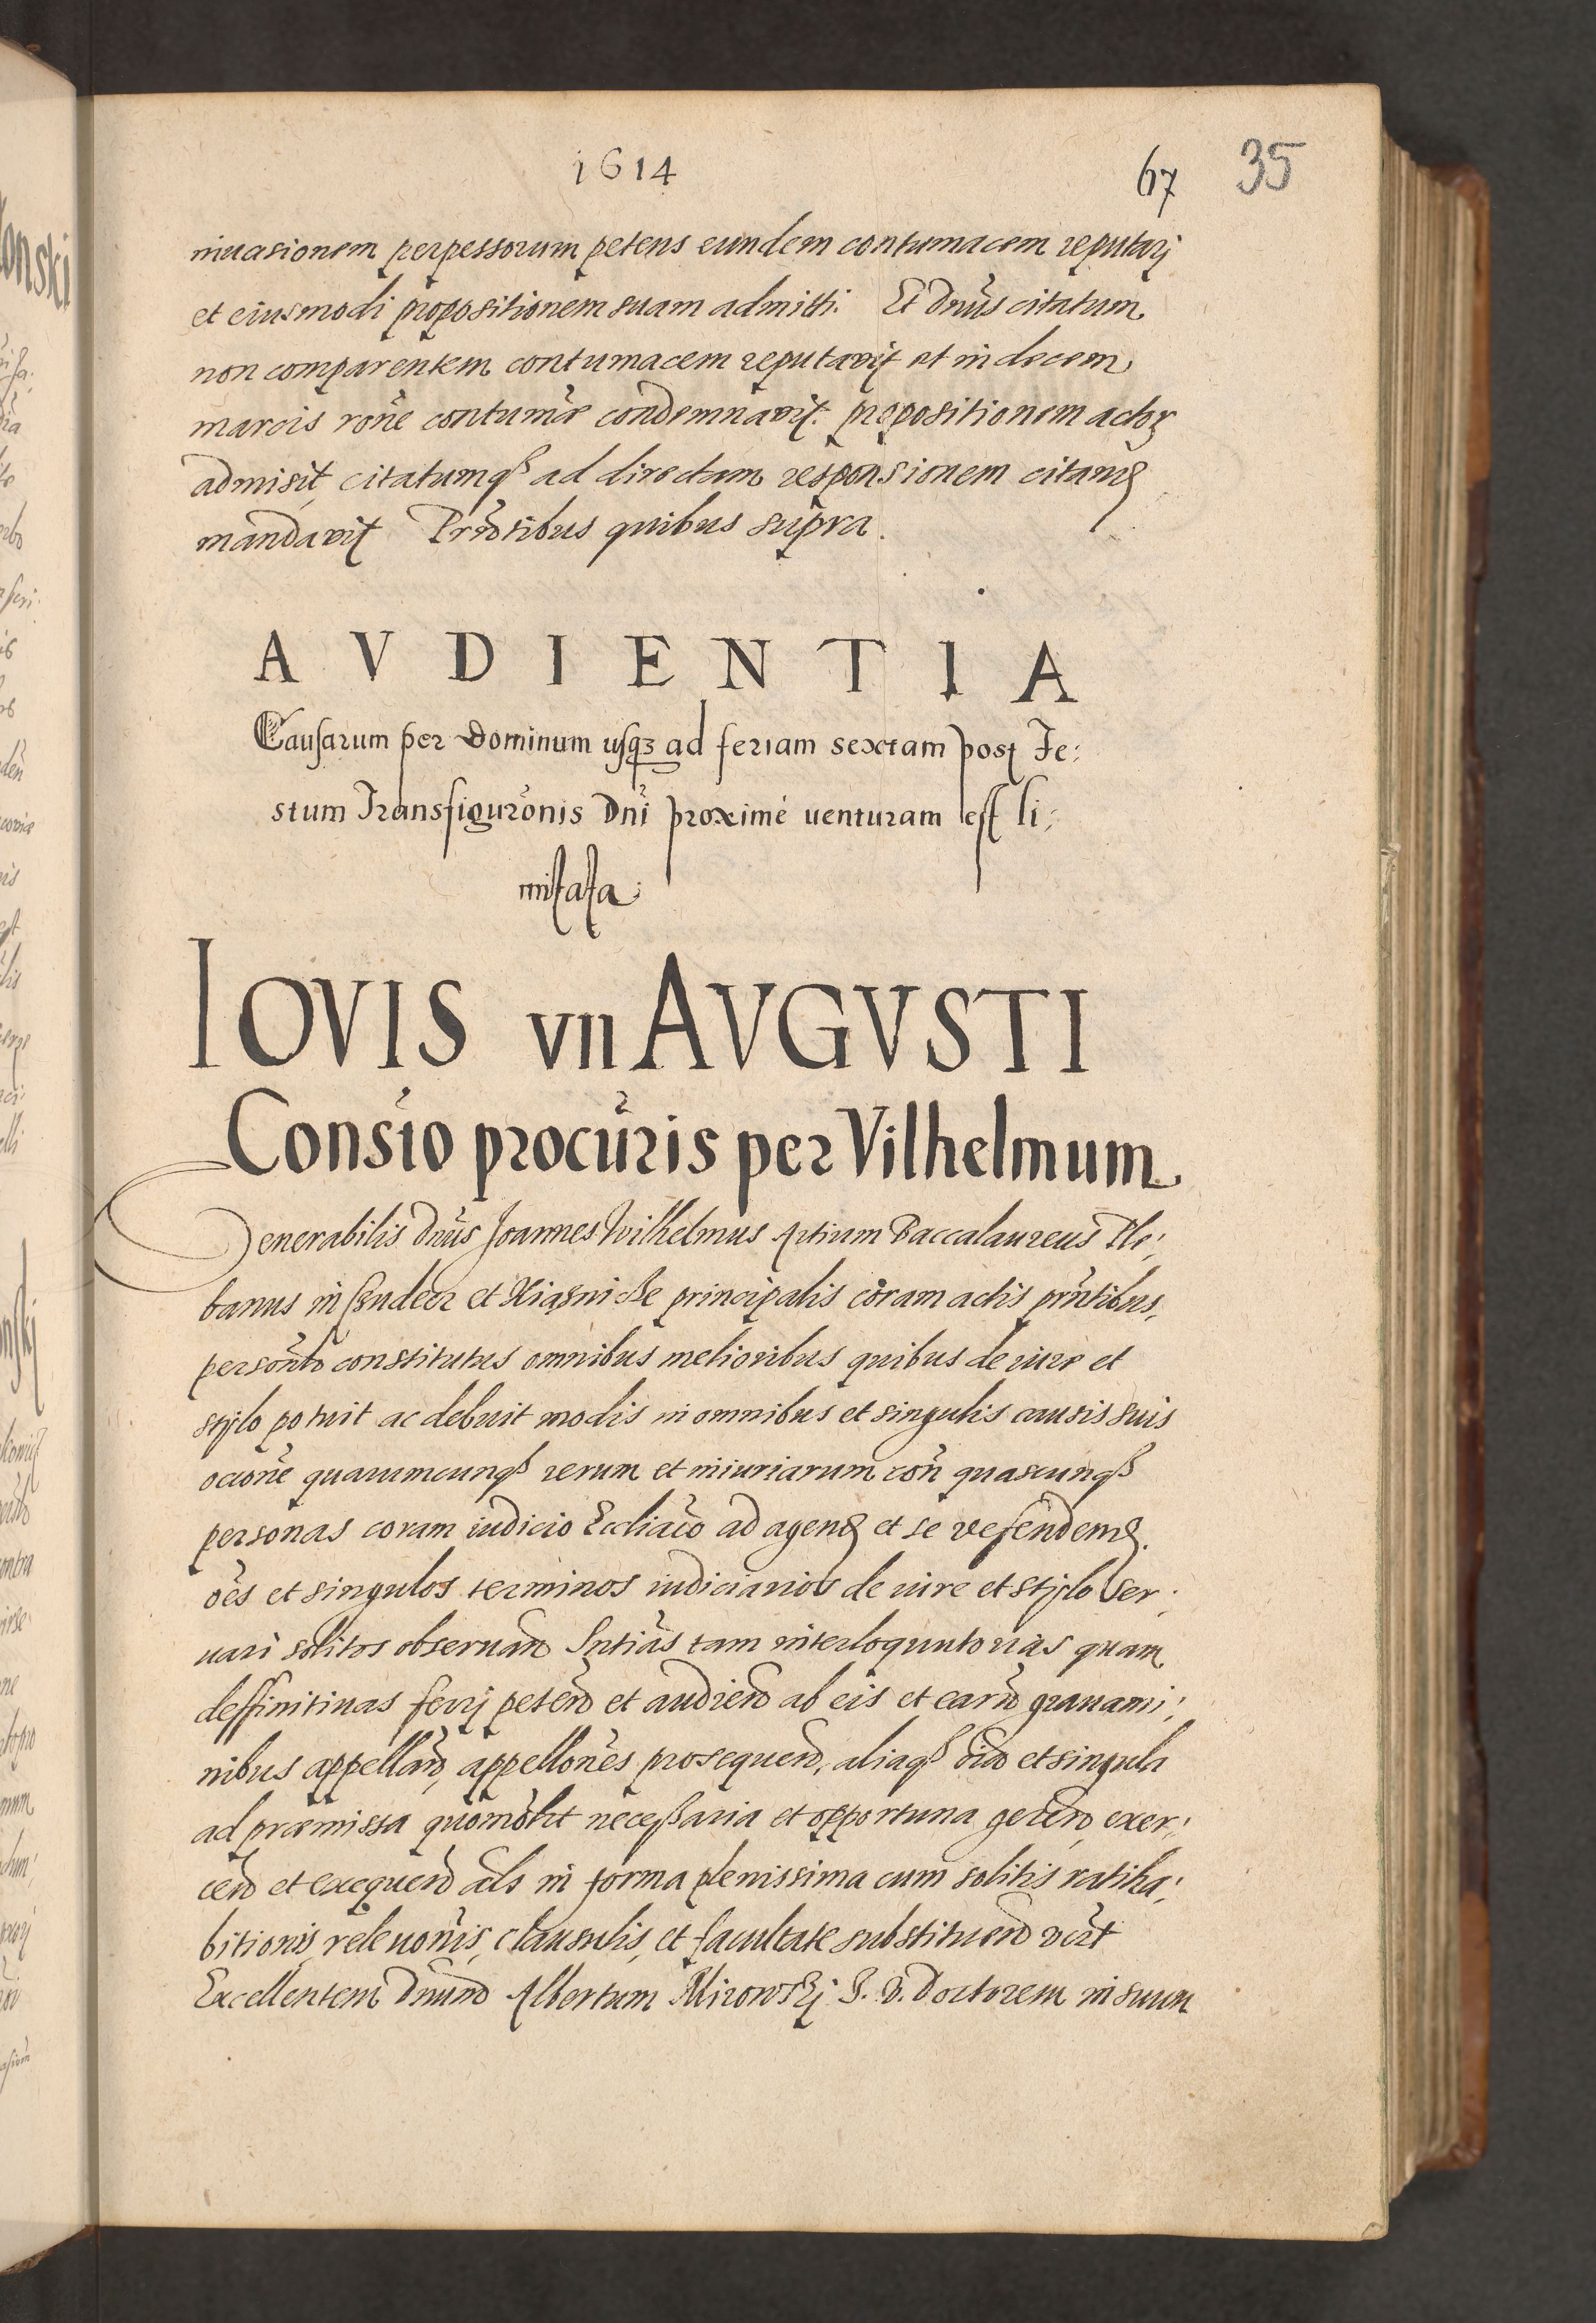 1614
67 35
inuasionem perpessorum petens eundem contumacem reputarj
et eiusmodi propositionem suam admitti. Et Dnus citatum
non comparentem contumacem reputavit et in decem
marcis rone contumae condemnavit. propositionem actorꝫ
admisit, citatumqꝫ ad directam responsionem citand
mandavit Prntibus quibus supra.
AVDIENTIA
Causarum per Dominum usqꝫ ad feriam sextam post Fe:
stum Transfiguronis Dni proximé venturam est li:
mitata.
IOVIS VII AVGVSTI
Consto procuris per Vilhelmum
Venerabilis Dnus Joannes Wilhelmus Artium Baccalaureus Ple:
banus in et Xiąznicze principalis coram actis prntibus,
personto constitutus omnibus melioribus quibus de iure et
stylo potuit ac debuit modis in omnibus et singulis causis suis
occone quarumcunqꝫ rerum et iniuriarum con quascunqꝫ
personas coram iudicio Eccliaco ad agend et se defendend.
oes et singulos terminos iudiciarios de iure et stylo ser:
uari solitos obseruand Sntias tam interloquutorias quam
deffinitiuas ferrj petend et audiend ab eis et earu grauami:
nibus appelland, appellones prosequend, aliaqꝫ oia et singula
ad praemissa quomolt necessaria et opportuna gerend exer:
cend et exequend als in forma plenissima cum solitis ratiha:
bitionis, releuonis, clausulis, et facultate substituend vert
Excellentem Dnum Albertum Mirowskj I. V. Doctorem in suum